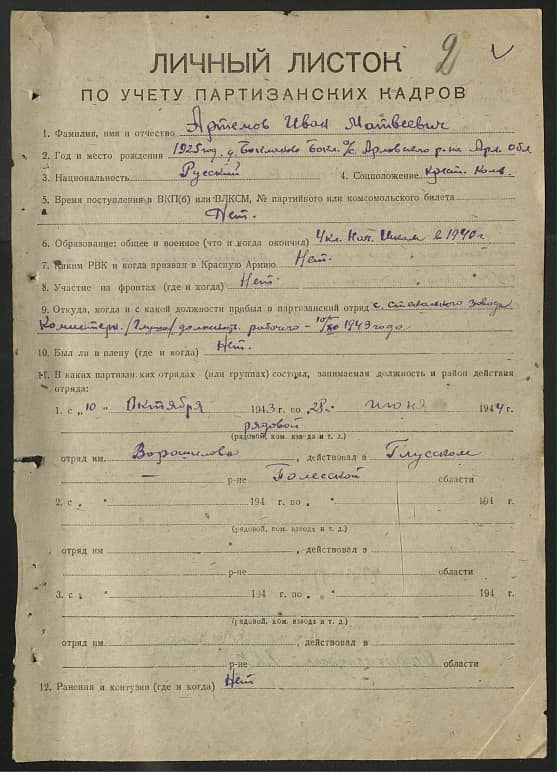 2
ЛИЧНЫЙ ЛИСТОК
ПО УЧЕТУ ПАРТИЗАНСКИХ КАДРОВ
1. Фамилия, имя и отчество Артемов Иван Матвеевич
2. Год и место рождения 1925 год
3. Национальность Русский 4. Соцположение
5. Время поступления в ВКП(б) или ВЛКСМ, № партийного или комсомольского билета
Нет.
6. Образование: общее и военное (что и когда окончил) 4 кл. Нач. Школы в 1940 г
7. Каким РВК и когда призван в Красную Армию Нет.
8. Участие на фронтах (где и когда) Нет.
9. Откуда, когда и с какой должности прибыл в партизанский отряд с. Стекольного завода
рабочего 1943 года
10. Был ли в плену (где и когда) Нет.
11. В каких партизанских отрядах (или группах) состоял, занимаемая должность и район действия
отряда:
1. с „10 " Октября 1943 г. по „28 " июня 1944 г.
рядовой
(рядовой, ком. взвода и т. д.)
отряд им Ворошилова, действовал в Глусском
р-не Полесской области
2. с „ " 194 г. по „ " 194 г.
(рядовой, ком. взвода и т. д.)
отряд им , действовал в
р-не области
3. с „ " 194 г. по „ " 194 г.
(рядовой, ком. взвода и т. д.)
отряд им , действовал в
р-не области
12. Ранения и контузии (где и когда) Нет